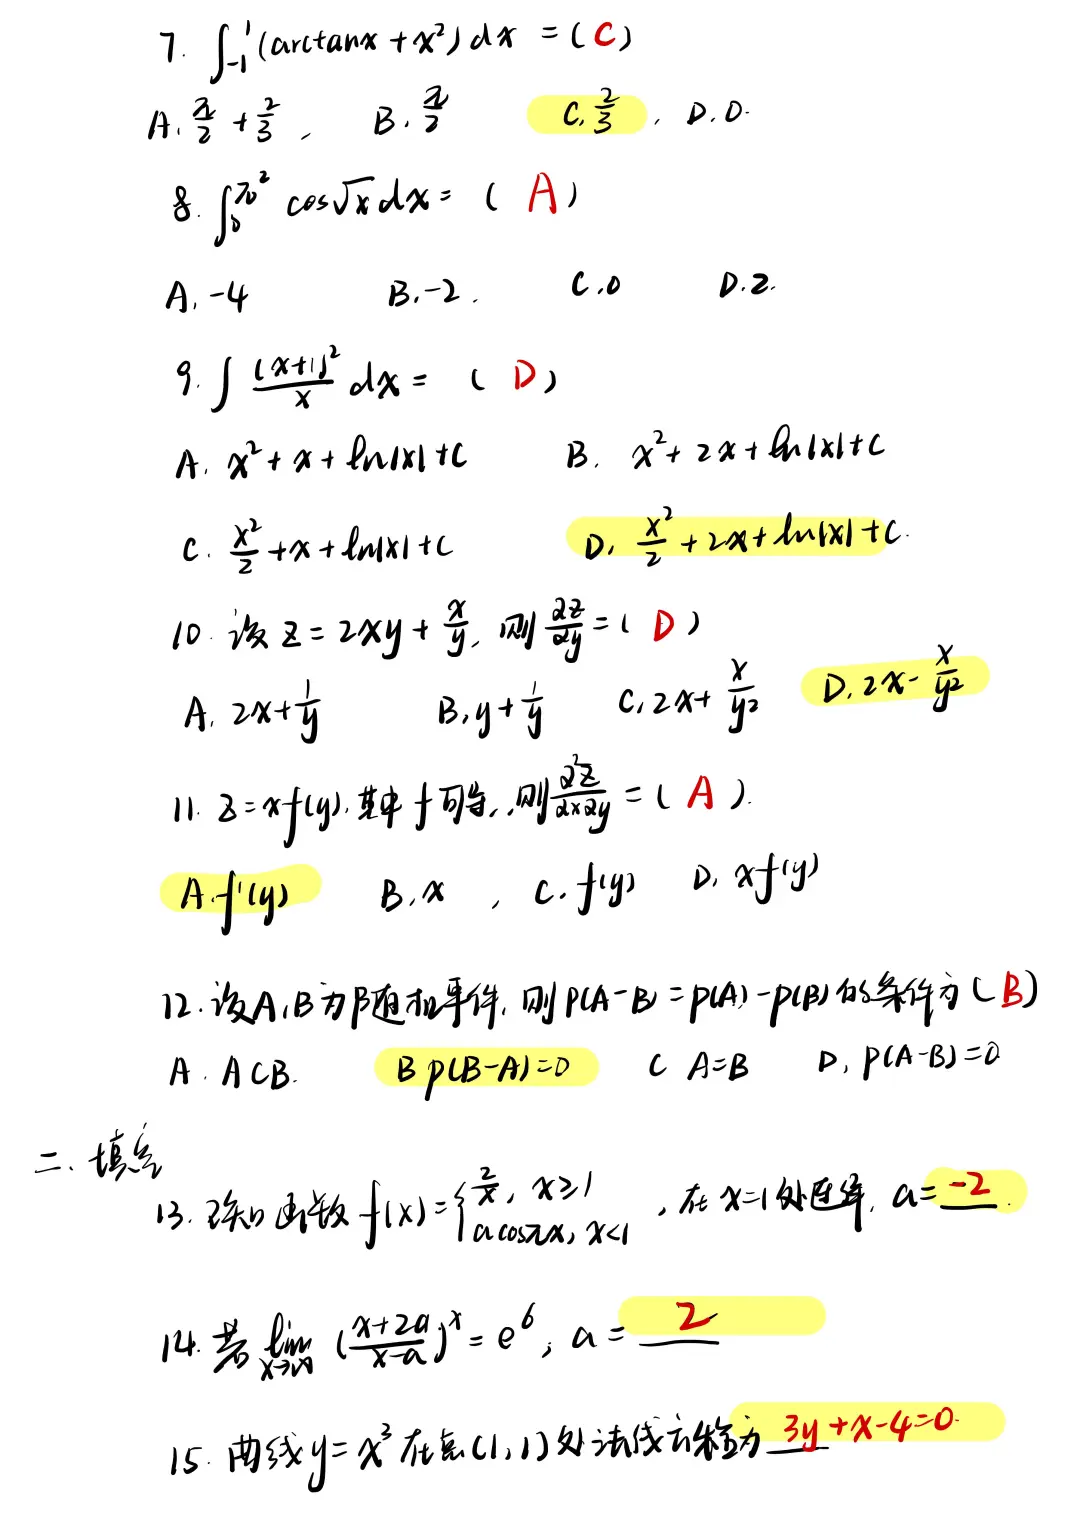 7. ∫₋₁¹ (arctanx + x²) dx = ( C )
A. π/2 + 2/3 , B. π/2 C. 2/3 , D. 0.
8. ∫₀^π² cos√x dx = ( A )
A. -4 B. -2. C. 0 D. 2.
9. ∫ (x+1)²/x dx = ( D )
A. x² + x + ln|x| + C B. x² + 2x + ln|x| + C
C. x²/2 + x + ln|x| + C D. x²/2 + 2x + ln|x| + C.
10. 设 z = 2xy + x/y, 则 ∂z/∂y = ( D )
A. 2x + 1/y B. y + 1/y C. 2x + x/y² D. 2x - x/y²
11. z = xf(y), 其中 f 可导, 则 ∂²z/∂x∂y = ( A ).
A. f'(y) B. x , C. f(y) D. xf(y)
12. 设A,B为随机事件, 则 P(A-B) = P(A) - P(B) 的条件为 ( B )
A. A⊂B. B P(B-A)=0 C A=B D. P(A-B)=0
二、填空
13. 已知函数 f(x) = { 2/x, x≥1
acosπx, x<1 , 在 x=1 处连续, a = -2.
14. 若 lim x→∞ ((x+2a)/(x-a))^x = e⁶, a = 2
15. 曲线 y = x³ 在点 (1,1) 处法线方程为 3y+x-4=0.